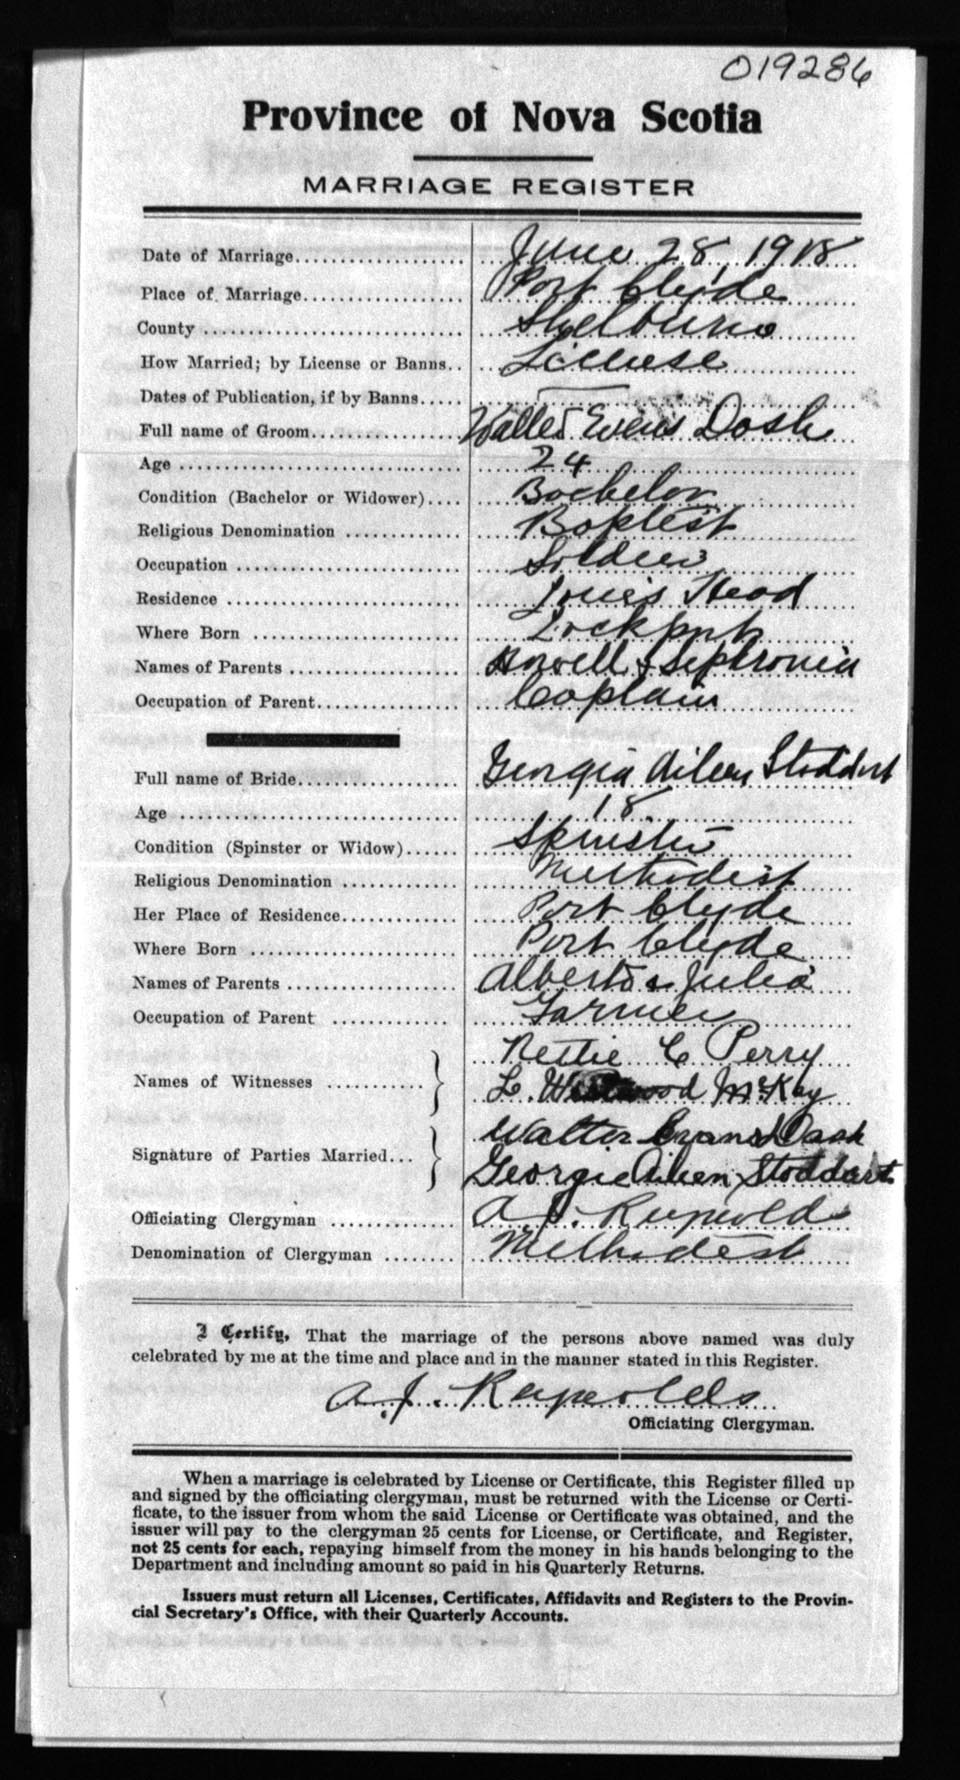 019286
Province of Nova Scotia
MARRIAGE REGISTER
Date of Marriage.................... June 28, 1918
Place of Marriage.................. Port Clyde
County ............................ Shelburne
How Married; by License or Banns.. License
Dates of Publication, if by Banns.....
Full name of Groom................ Walter Evens Dosh
Age ............................... 24
Condition (Bachelor or Widower).... Bachelor
Religious Denomination ............ Baptist
Occupation ........................ Soldier
Residence ......................... Louis Head
Where Born ....................... Lockport
Names of Parents .................. & Sephronia
Occupation of Parent............... Captain
Full name of Bride................. Georgia Aileen Stoddart
Age ............................... 18
Condition (Spinster or Widow)...... Spinster
Religious Denomination ............ Methodist
Her Place of Residence............. Port Clyde
Where Born ....................... Port Clyde
Names of Parents .................. Albert & Julia
Occupation of Parent ............. Farmer
Names of Witnesses ........... } Nettie C Perry
L. McKay
Signature of Parties Married... } Walter Evans Dash
Georgie Aileen Stoddart
Officiating Clergyman ............. A. J. Reynolds
Denomination of Clergyman ........ Methodist
I Certify, That the marriage of the persons above named was duly
celebrated by me at the time and place and in the manner stated in this Register.
A. J. Reynolds
Officiating Clergyman.
When a marriage is celebrated by License or Certificate, this Register filled up
and signed by the officiating clergyman, must be returned with the License or Certi-
ficate, to the issuer from whom the said License or Certificate was obtained, and the
issuer will pay to the clergyman 25 cents for License, or Certificate, and Register,
not 25 cents for each, repaying himself from the money in his hands belonging to the
Department and including amount so paid in his Quarterly Returns.
Issuers must return all Licenses, Certificates, Affidavits and Registers to the Provin-
cial Secretary's Office, with their Quarterly Accounts.